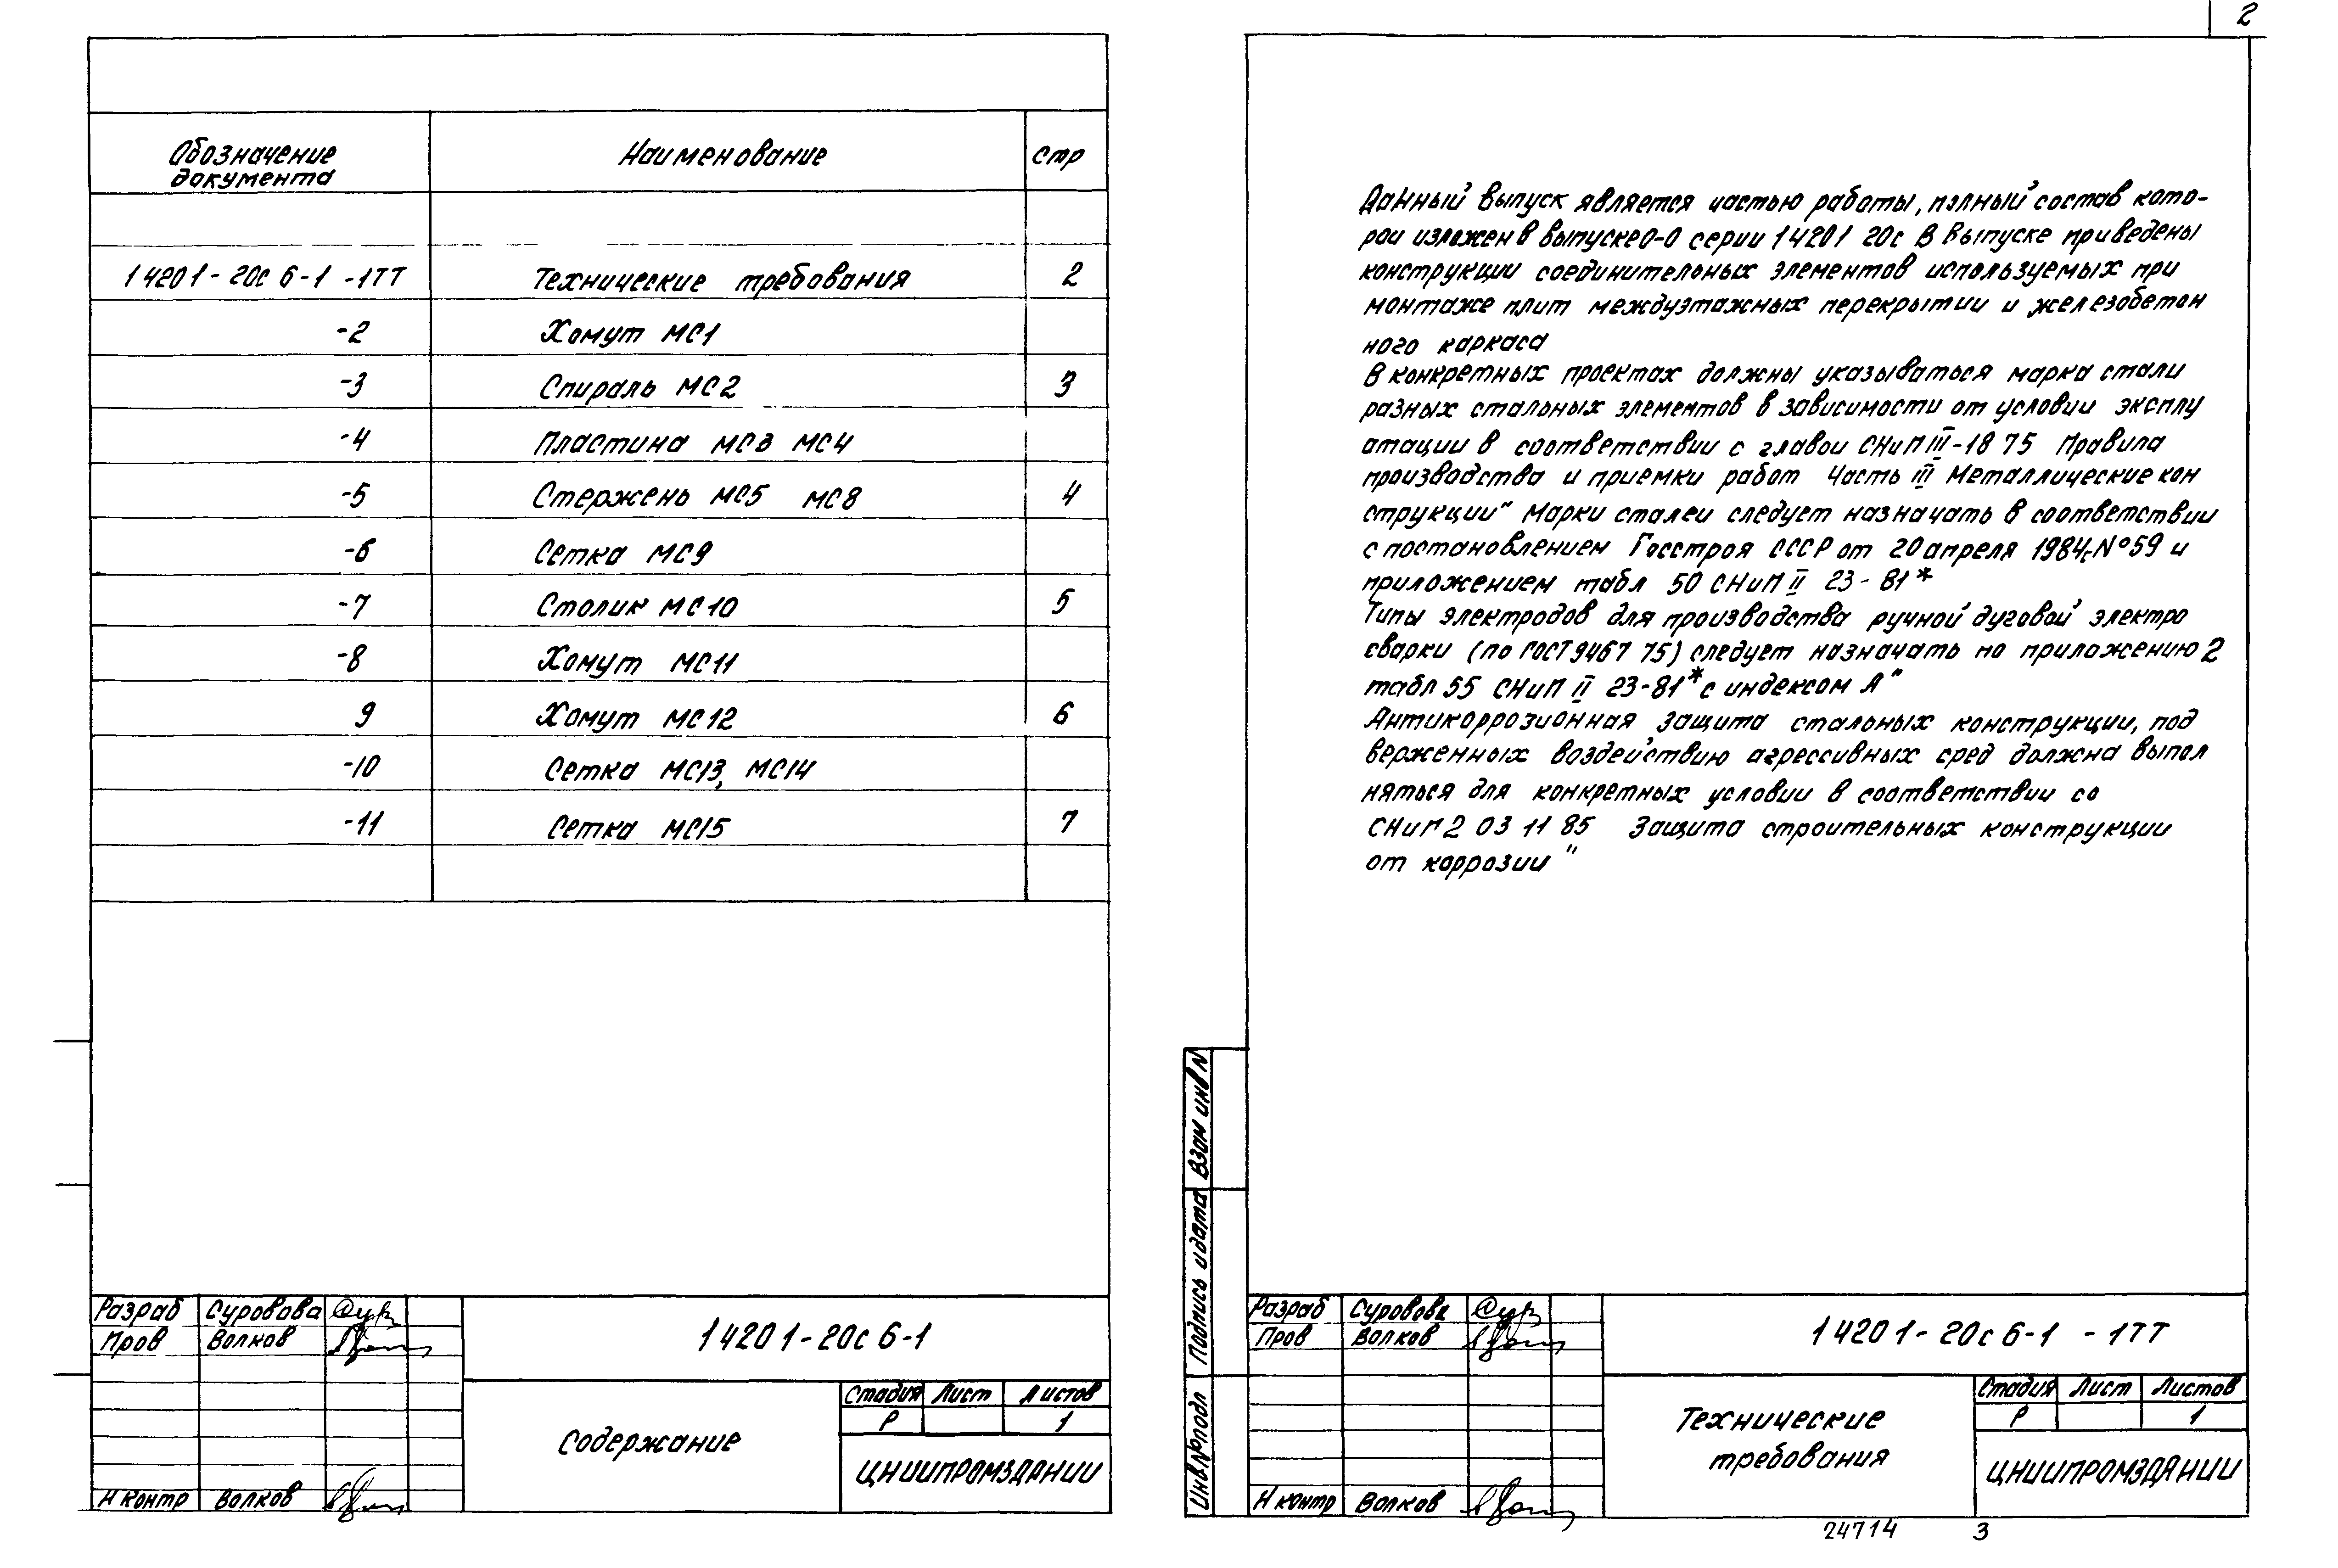 2
Обозначение документа Наименование Стр
1 420 1- 20с 6-1 -1ТТ Технические требования 2
-2 Хомут МС1
-3 Спираль МС2 3
-4 Пластина МС3 МС4
-5 Стержень МС5 МС8 4
-6 Сетка МС9
-7 Столик МС10 5
-8 Хомут МС11
9 Хомут МС12 6
-10 Сетка МС13, МС14
-11 Сетка МС15 7
Разраб Суровова
Пров Волков
1 420 1-20с 6-1
Содержание
Стадия Лист Листов
Р 1
ЦНИИПРОМЗДАНИИ
Н контр Волков
Данный выпуск является частью работы, полный состав кото-
рои изложен в выпуске 0-0 серии 1 420 1 20с В выпуске приведены
конструкции соединительных элементов используемых при
монтаже плит междуэтажных перекрытии и железобетон
ного каркаса
В конкретных проектах должны указываться марка стали
разных стальных элементов в зависимости от условии эксплу
атации в соответствии с главои СНиП III-18 75 Правила
производства и приемки работ Часть III Металлические кон
струкции" Марки сталеи следует назначать в соответствии
с постановлением Госстроя СССР от 20 апреля 1984г N°59 и
приложением табл 50 СНиП II 23-81*
Типы электродов для производства ручной дуговой электро
сварки (по ГОСТ 9467 75) следует назначать по приложению 2
табл 55 СНиП II 23-81* с индексом А"
Антикоррозионная защита стальных конструкции, под
верженных воздействию агрессивных сред должна выпол
няться для конкретных условии в соответствии со
СНиП 2 03 11 85 Защита строительных конструкции
от коррозии "
Взам инв N
Подпись и дата
Инв № подл
Разраб Суровова
Пров Волков
1 420 1- 20с 6-1 - 1ТТ
Технические
требования
Стадия Лист Листов
Р 1
ЦНИИПРОМЗДАНИИ
Н контр Волков
24714 3